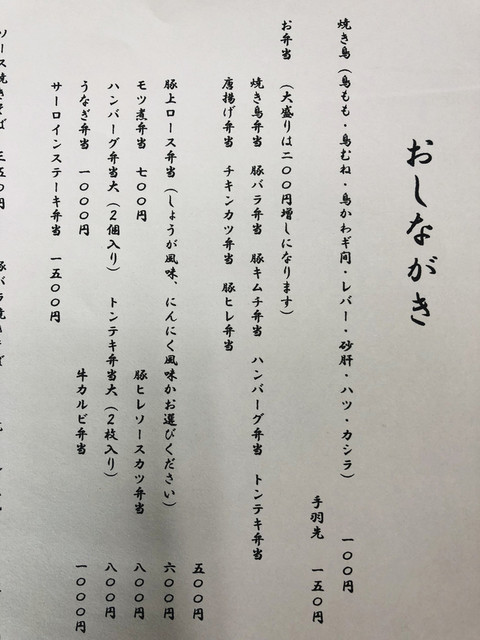 おしながき
焼き鳥（鳥もも・鳥むね・鳥かわギ間・レバー・砂肝・ハツ・カシラ）　一〇〇円
手羽先　一五〇円
お弁当　（大盛りは二〇〇円増しになります）
焼き鳥弁当　豚バラ弁当　豚キムチ弁当　ハンバーグ弁当　トンテキ弁当
唐揚げ弁当　チキンカツ弁当　豚ヒレ弁当
五〇〇円
豚上ロース弁当（しょうが風味、にんにく風味かお選びください）　六〇〇円
モツ煮弁当　七〇〇円　豚ヒレソースカツ弁当　八〇〇円
ハンバーグ弁当大（２個入り）　トンテキ弁当大（２枚入り）　八〇〇円
うなぎ弁当　一〇〇〇円　牛カルビ弁当　一〇〇〇円
サーロインステーキ弁当　一五〇〇円
ソース焼きそば　三五〇円　豚バラ焼きそば